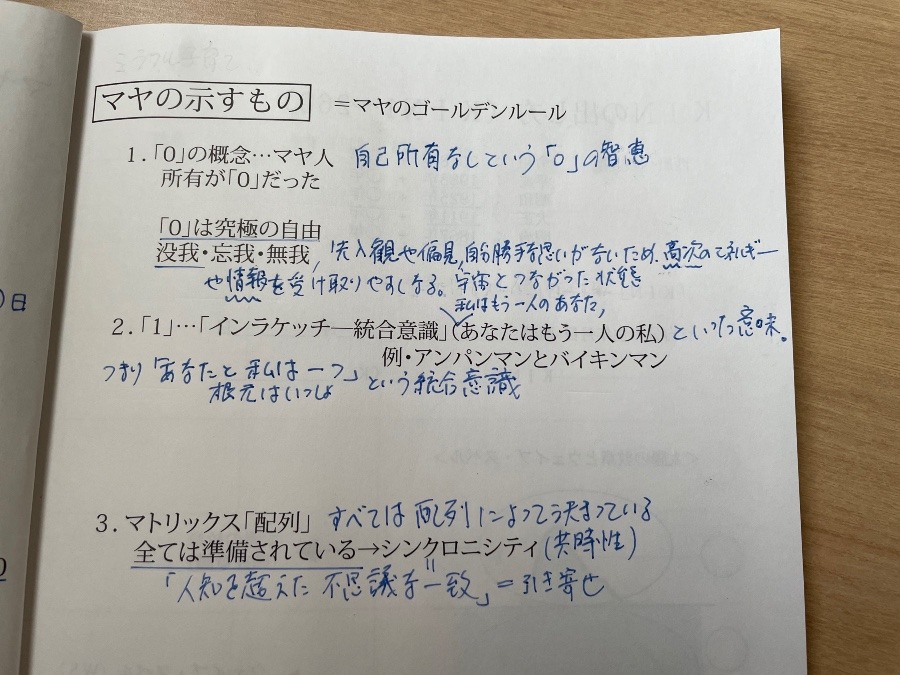 マヤの示すもの ＝マヤのゴールデンルール
1．「0」の概念…マヤ人 自己所有なしという「0」の智恵
所有が「0」だった
「0」は究極の自由
没我・忘我・無我，先入観や偏見，自分勝手な思いがないため、高次のエネルギー
や情報を受け取りやすくなる。宇宙とつながった状態
私はもう一人のあなた，
2．「1」…「インラケッチ―統合意識」（あなたはもう一人の私）といった意味．
例・アンパンマンとバイキンマン
つまり「あなたと私は一つ」という統合意識
根元はいっしょ
3．マトリックス「配列」 すべては配列によって決まっている
全ては準備されている→シンクロニシティ（共時性）
「人知を超えた不思議な一致」＝引き寄せ
日